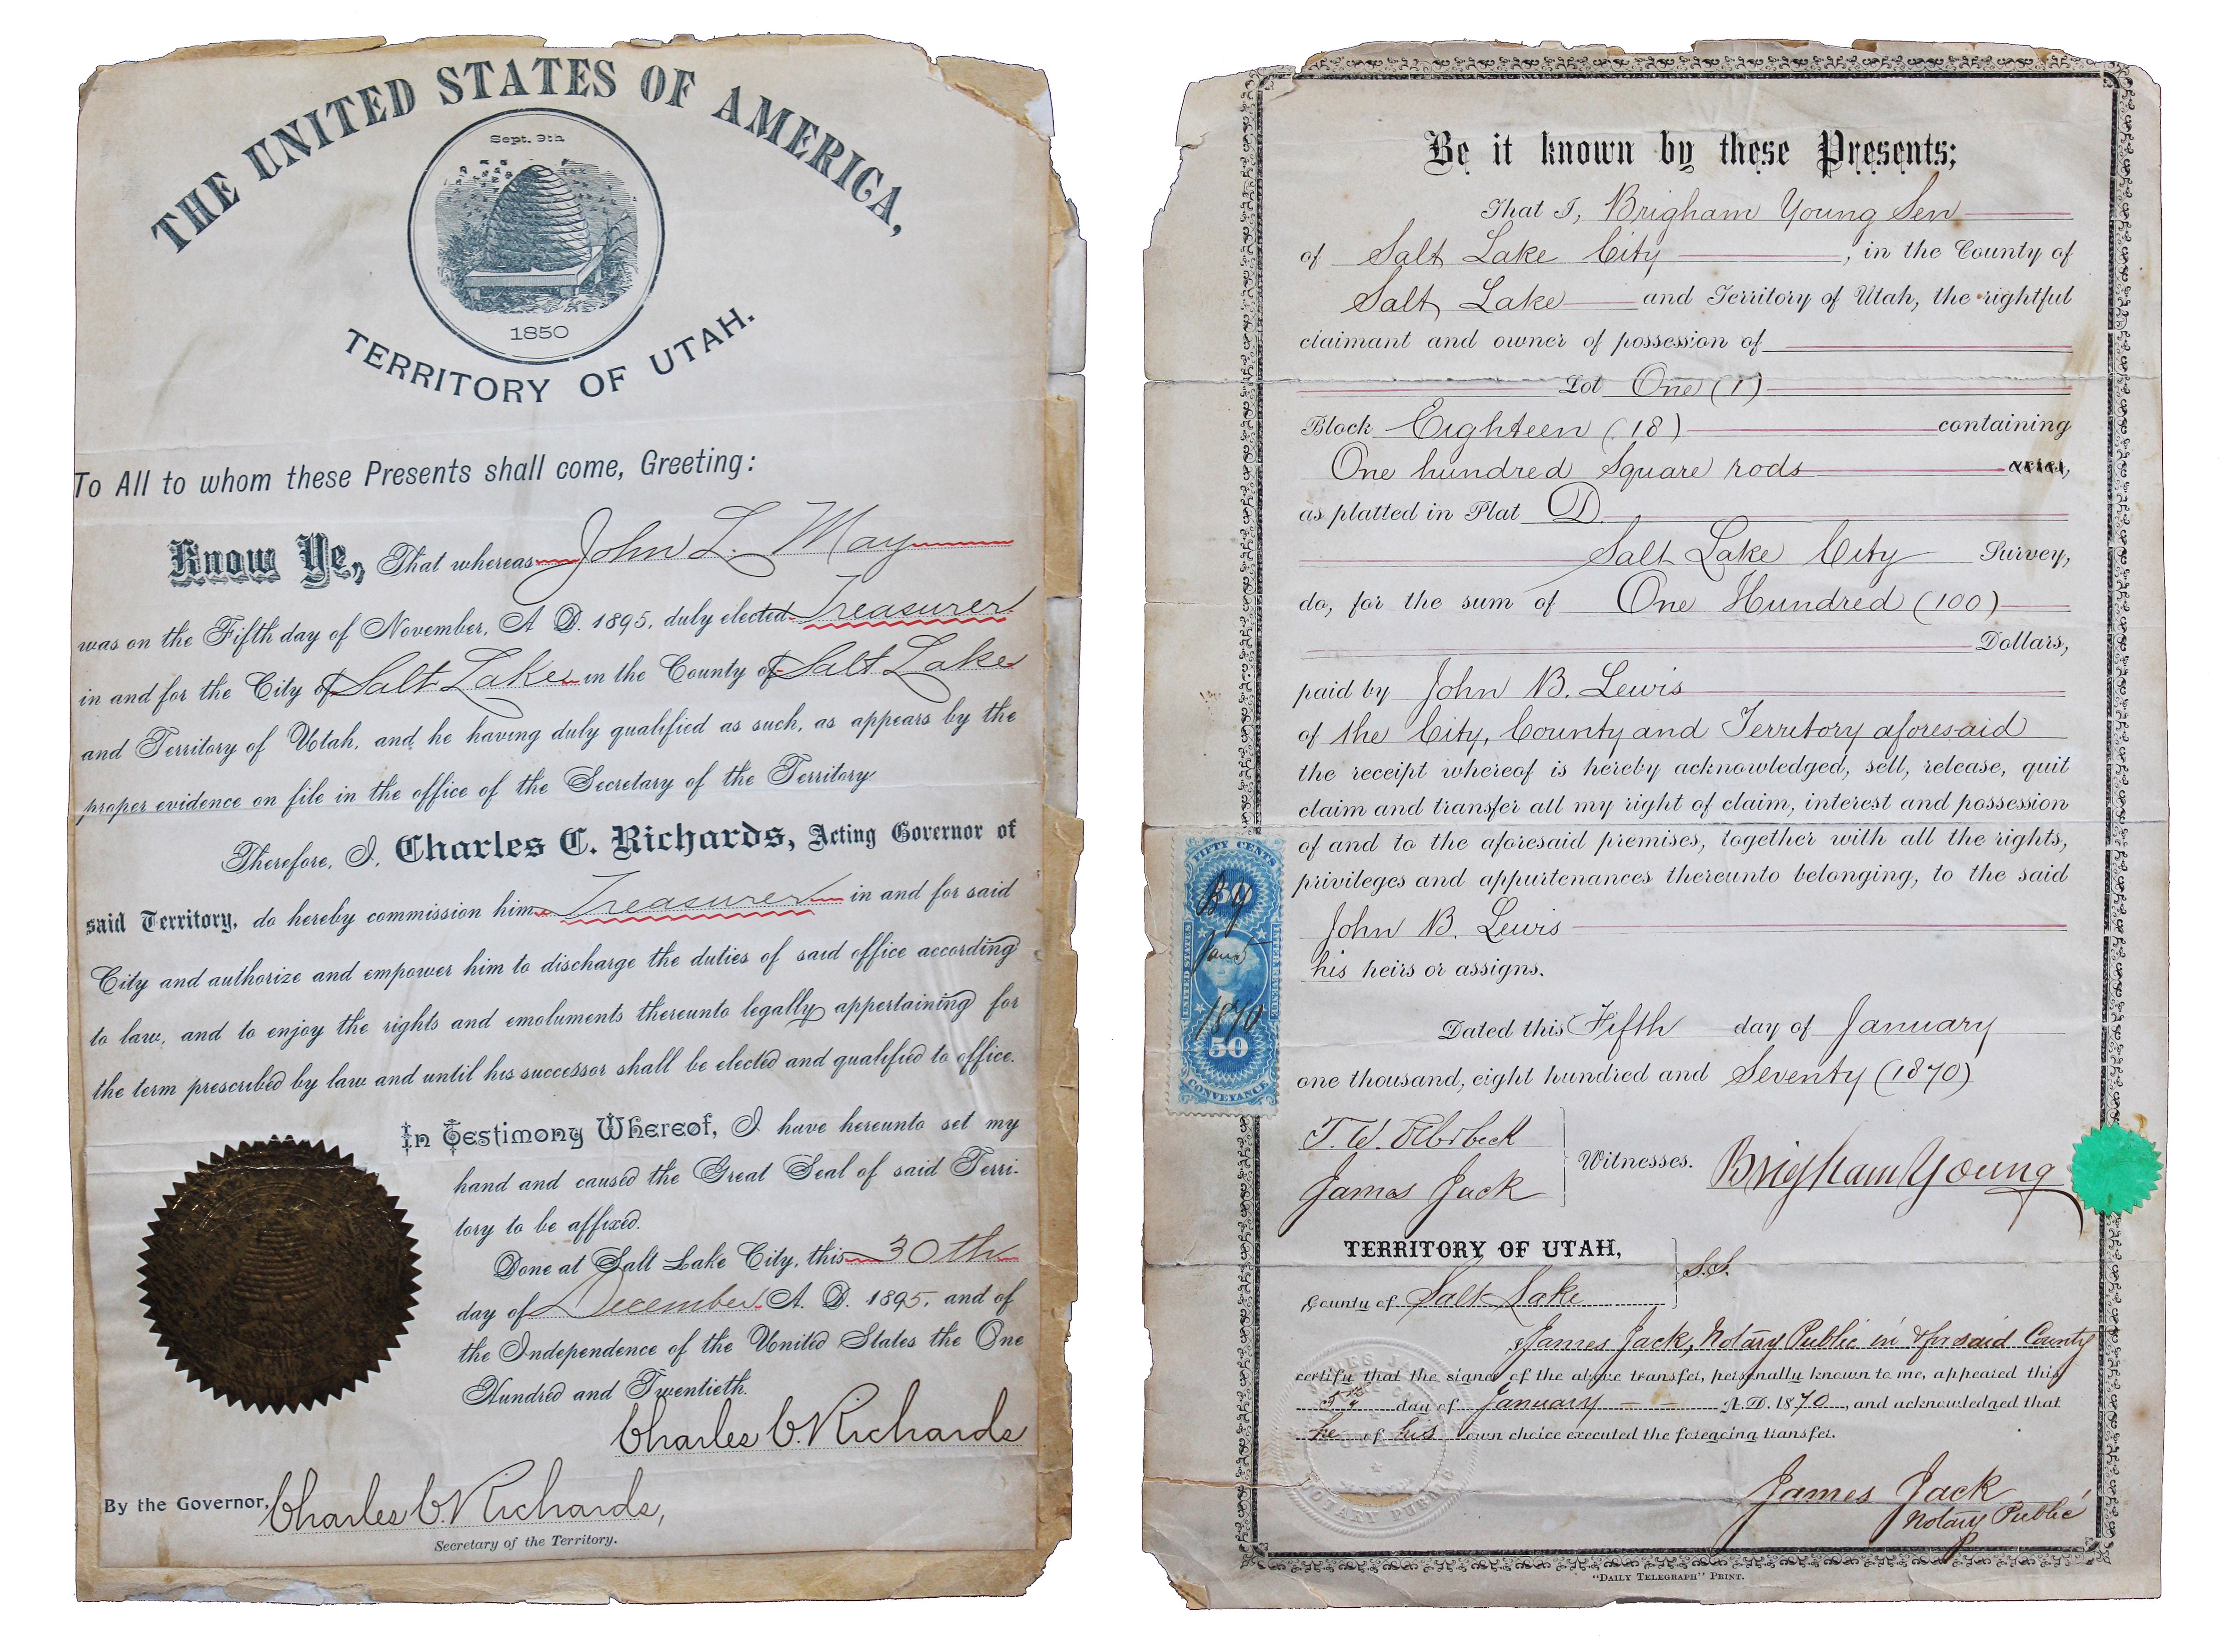 THE UNITED STATES OF AMERICA,
Sept. 9th
1850
TERRITORY OF UTAH.
To All to whom these Presents shall come, Greeting:
Know Ye, That whereas John L. May
was on the Fifth day of November, A. D. 1895, duly elected Treasurer
in and for the City of Salt Lake in the County of Salt Lake
and Territory of Utah, and he having duly qualified as such, as appears by the
proper evidence on file in the office of the Secretary of the Territory
Therefore, I, Charles C. Richards, Acting Governor of
said Territory, do hereby commission him Treasurer in and for said
City and authorize and empower him to discharge the duties of said office according
to law, and to enjoy the rights and emoluments thereunto legally appertaining for
the term prescribed by law and until his successor shall be elected and qualified to office.
In Testimony Whereof, I have hereunto set my
hand and caused the Great Seal of said Terri-
tory to be affixed.
Done at Salt Lake City, this 30th
day of December A. D. 1895, and of
the Independence of the United States the One
Hundred and Twentieth.
Charles C. Richards
By the Governor, Charles C. Richards,
Secretary of the Territory.
Be it known by these Presents;
That I, Brigham Young Sen
of Salt Lake City, in the County of
Salt Lake and Territory of Utah, the rightful
claimant and owner of possession of
Lot One (1)
Block Eighteen (18) containing
One hundred Square rods
as platted in Plat D.
Salt Lake City Survey,
do, for the sum of One Hundred (100)
Dollars,
paid by John B. Lewis
of the City, County and Territory aforesaid
the receipt whereof is hereby acknowledged, sell, release, quit
claim and transfer all my right of claim, interest and possession
of and to the aforesaid premises, together with all the rights,
privileges and appurtenances thereunto belonging, to the said
John B. Lewis
his heirs or assigns.
Dated this Fifth day of January
one thousand, eight hundred and Seventy (1870)
FIFTY CENTS
50
BY
Jan 5
UNITED STATES
INTER. REVENUE
1870
50
CONVEYANCE
T. W. Ellerbeck
James Jack
Witnesses.
Brigham Young
TERRITORY OF UTAH,
County of Salt Lake
S.S.
I James Jack, Notary Public in & for said County
certify that the signer of the above transfer, personally known to me, appeared this
5th day of January A. D. 1870, and acknowledged that
he of his own choice executed the foregoing transfer.
NOTARY PUBLIC
James Jack
Notary Public
"DAILY TELEGRAPH" PRINT.